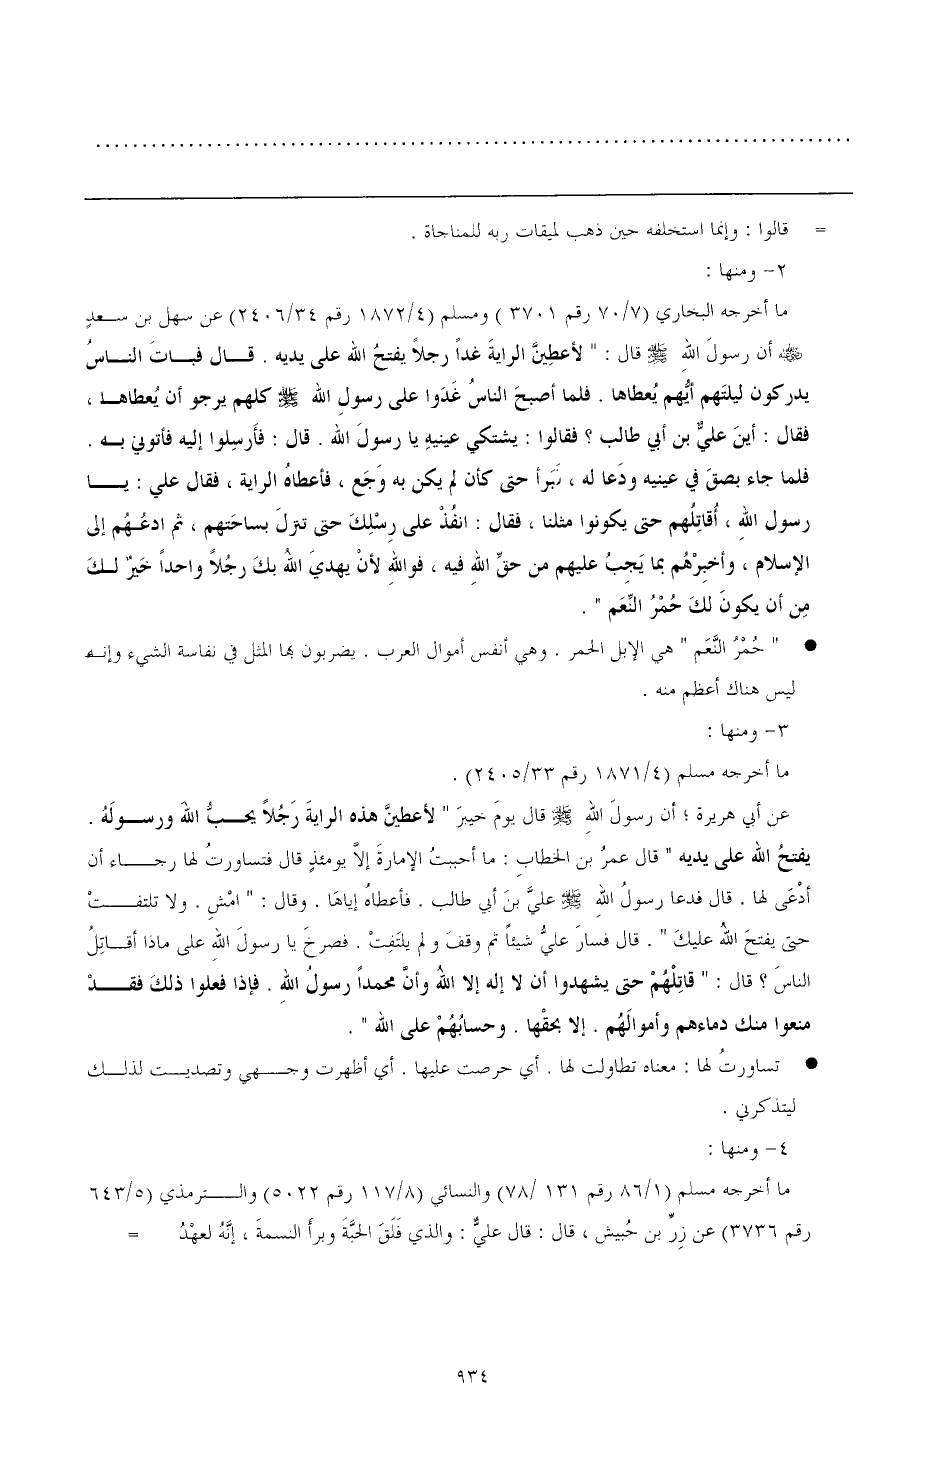 ........................................................................
= قالوا : وإنما استخلفه حين ذهب لميقات ربه للمناجاة .
٢- ومنها :
ما أخرجه البخاري (٧/ ٧٠ رقم ٣٧٠١ ) ومسلم (٤/ ١٨٧٢ رقم ٣٤/ ٢٤٠٦) عن سهل بن سـعدٍ
رضي الله عنه أن رسولَ الله ﷺ قال : " لأعطِينَّ الرايةَ غداً رجلاً يفتحُ الله على يديه . قـــال فبـــاتَ النـــاسُ
يدركون ليلتَهم أيُّهم يُعطاها . فلما أصبحَ الناسُ غَدَوا على رسولِ الله ﷺ كلهم يرجو أن يُعطاهــا ،
فقال : أينَ عليُّ بن أبي طالب ؟ فقالوا : يشتكي عينيهِ يا رسولَ الله . قال : فَأرسِلوا إليه فأتوني بــه .
فلما جاء بصقَ في عينيه ودَعا له ، فَبَرأ حتى كأن لم يكن به وَجَع ، فأعطاهُ الراية ، فقال علي : يـــا
رسول الله ، أُقاتِلُهم حتى يكونوا مثلنا ، فقال : انفُذْ على رِسْلِكَ حتى تنزلَ بساحَتهم ، ثم ادعُـهُم إلى
الإسلام ، وأخبِرْهُم بما يَجبُ عليهم من حقِّ اللهِ فيه ، فواللهِ لأنْ يهديَ اللهُ بكَ رجُلاً واحداً خَيرٌ لـكَ
مِن أن يكونَ لكَ حُمْرُ النَّعَم " .
● " حُمْرُ النَّعَم " هي الإبل الحمر . وهي أنفس أموال العرب . يضربون بها المثل في نفاسة الشيء وإنــه
ليس هناك أعظم منه .
٣- ومنها :
ما أخرجه مسلم (٤/ ١٨٧١ رقم ٣٣/ ٢٤٠٥) .
عن أبي هريرة ؛ أن رسولَ الله ﷺ قال يومَ خيبرَ " لأعطينَّ هذه الرايةَ رَجُلاً يحـــبُّ اللهَ ورســـولَهُ .
يفتحُ الله على يديه " قال عمرُ بن الخطاب : ما أحببتُ الإمارةَ إلاَّ يومئذٍ قال فتساورتُ لها رجـــاء أن
أدْعَى لها . قال فدعا رسولُ اللهِ ﷺ عليَّ بنَ أبي طالب . فأعطاهُ إياهَا . وقال : " امْشِ . ولا تلتفـــتْ
حتى يفتحَ اللهُ عليكَ " . قال فسارَ عليُّ شيئاً ثم وقفَ و لم يلتَفِتْ . فصرخَ يا رسولَ اللهِ على ماذا أقـــاتِلُ
الناسَ ؟ قال : " قاتِلْهُمْ حتى يشهدوا أن لا إله إلا اللهُ وأنَّ محمداً رسولُ اللهِ . فإذا فعلوا ذلكَ فقـــدْ
منعوا منك دماءهم وأموالَهُم . إلا بحقِّها . وحسابُهُمْ على الله " .
● تساورتُ لها : معناه تطاولت لها . أي حرصت عليها . أي أظهرت وجـــهي وتصديـــت لذلـــك
ليتذكرني .
٤- ومنها :
ما أخرجه مسلم (١/ ٨٦ رقم ١٣١ /٧٨) والنسائي (٨/ ١١٧ رقم ٥٠٢٢) والـــترمذي (٥/ ٦٤٣
رقم ٣٧٣٦) عن زِرِّ بن حُبيش ، قال : قال عليُّ : والذي فَلَقَ الحَبَّةَ وبرأَ النسمةَ ، إنَّهُ لعهْدُ =
٩٣٤